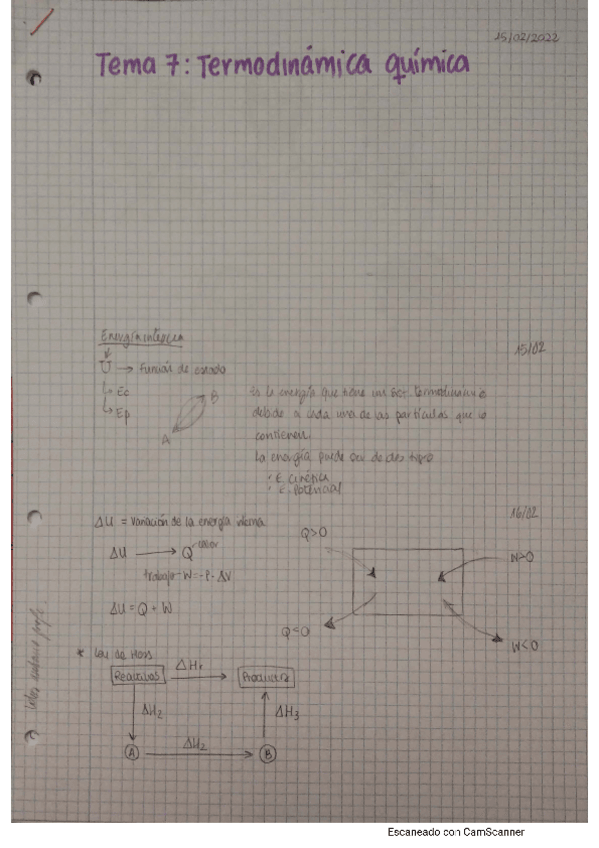 15/02/2022
Tema 7: Termodinámica química
Energía interna
15/02
U → Función de estado
Ec
Ep
A
B
Es la energía que tiene un termodinámico
debido a cada una de las partículas que lo
contienen
La energía puede ser de dos tipos
· E. Cinética
· E. Potencial
16/02
ΔU = Variación de la energía interna
ΔU → Q calor
trabajo W = - P · ΔV
ΔU = Q + W
Q>0
W>0
Q<0
W<0
* Ley de Hess
Reactivos
ΔH₁
Productos
ΔH₂
ΔH₃
A
ΔH₂
B
Escaneado con CamScanner